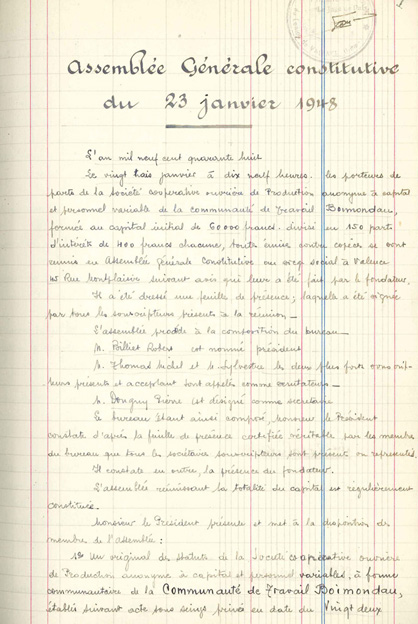 Assemblée Générale constitutive
du 23 janvier 1948
L'an mil neuf cent quarante huit
Le vingt trois janvier à dix neuf heures. les porteurs de
parts de la société coopérative ouvrière de Production anonyme à capital
et personnel variable de la communauté de Travail Boimondau,
formée au capital initial de 60000 francs. divisé en 150 parts
d'intérêt de 400 francs chacune, toutes émises contre espèces se sont
réunis en Assemblée Générale Constitutive au siège social à Valence
Rue Montplaisir suivant avis qui leur a été fait par le fondateur.
Il a été dressé une feuille de présence, laquelle a été signée
par tous les souscripteurs présents à la réunion_
L'assemblée procède à la composition du bureau_
M. Robert est nommé président
M. Thomas Michel et M. Sylvestre les deux plus forts
présents et acceptant sont appelés comme scrutateurs_
M. est désigné comme secrétaire
Le bureau étant ainsi composé, Monsieur le Président
constate d'après la feuille de présence certifiée véritable par les membres
du bureau que tous les sociétaires souscripteurs sont présents ou représentés.
Il constate en outre, la présence du fondateur.
L'assemblée réunissant la totalité du capital est régulièrement
constituée.
Monsieur le Président présente et met à la disposition des
membres de l'assemblée:
1º Un original des statuts de la Société coopérative ouvrière
de Production anonyme à capital et personnel variables, à forme
communautaire de la Communauté de Travail Boimondau,
établis suivant acte sous seings privé en date du Vingt deux